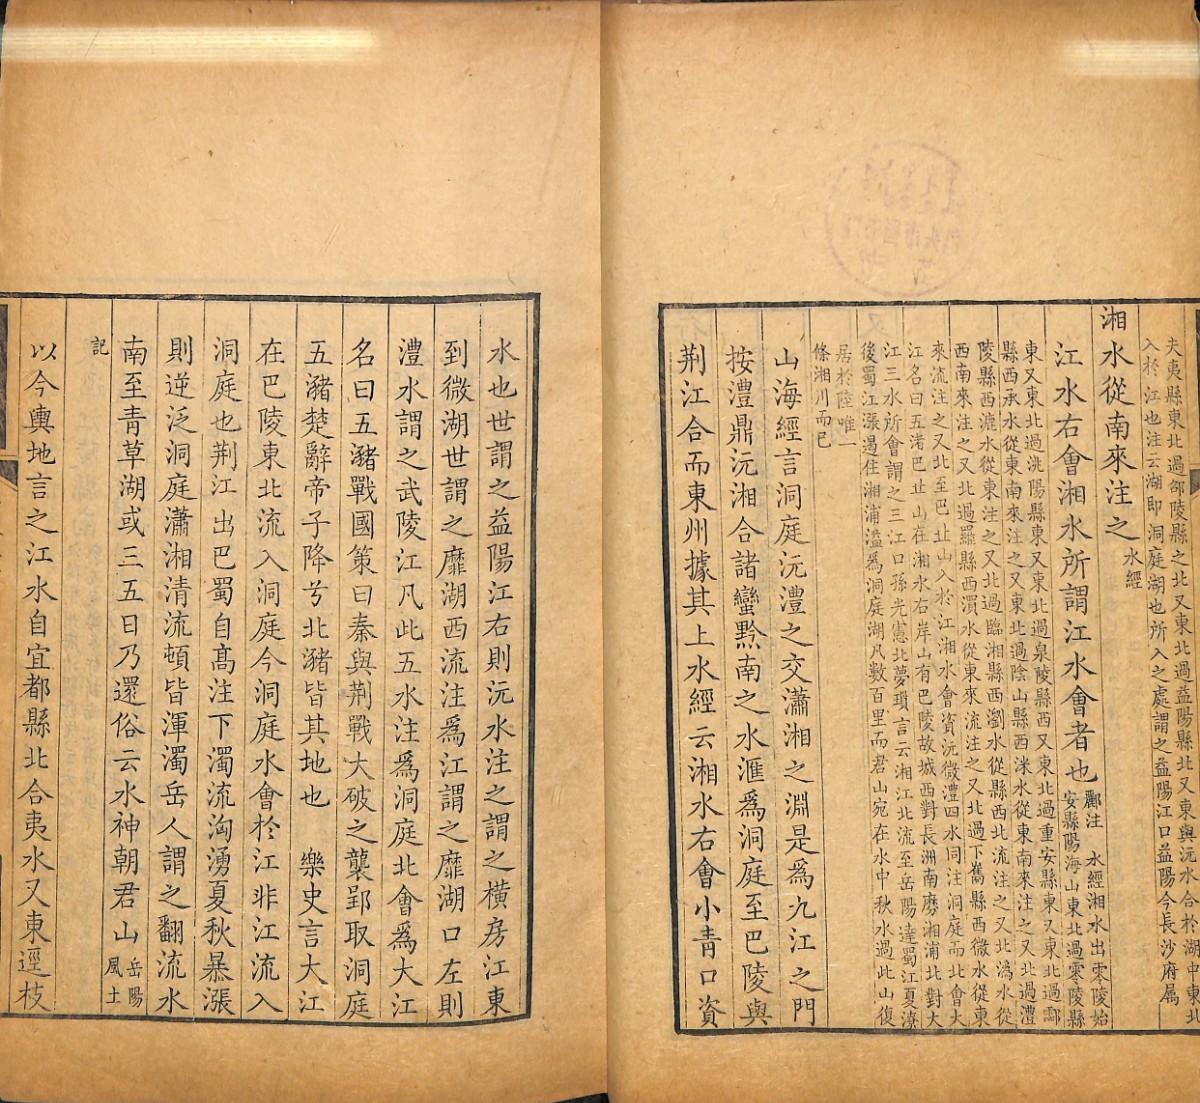 夫夷縣東北過邵陵縣之北又東北過益陽縣北又東與沅水合於湖中東北
入於江也注云湖即洞庭湖也所入之處謂之益陽江口益陽今長沙府屬
湘水從南來注之水經
江水右會湘水所謂江水會者也酈注 水經湘水出零陵始
安縣陽海山東北過零陵縣
東又東北過洮陽縣東又東北過泉陵縣西又東北過重安縣東又東北過酃
縣西承水從東南來注之又東北過陰山縣西洣水從東南來注之又北過澧
陵縣西漉水從東注之又北過臨湘縣西瀏水從縣西北流注之又北溈水從
西南來注之又北過羅縣西濆水從東來流注之又北過下雋縣西微水從東
來流注之又北至巴丘山入於江湘水會資沅微澧四水同注洞庭而北會大
江名曰五渚巴丘山在湘水右岸山有巴陵故城西對長洲南廇湘浦北對大
江三水所會謂之三江口孫光憲北夢瑣言云湘江北流至岳陽達蜀江夏潦
後蜀江漲遏住湘浦溢爲洞庭湖凡數百里而君山宛在水中秋水過此山復
居於陸唯一
條湘川而已
山海經言洞庭沅澧之交瀟湘之淵是爲九江之門
按澧鼎沅湘合諸蠻黔南之水滙爲洞庭至巴陵與
荆江合而東州據其上水經云湘水右會小青口資
水也世謂之益陽江右則沅水注之謂之橫房江東
到微湖世謂之麋湖西流注爲江謂之麋湖口左則
澧水謂之武陵江凡此五水注爲洞庭北會爲大江
名曰五瀦戰國策曰秦與荆戰大破之襲郢取洞庭
五瀦楚辭帝子降兮北瀦皆其地也 樂史言大江
在巴陵東北流入洞庭今洞庭水會於江非江流入
洞庭也荆江出巴蜀自高注下濁流洶湧夏秋暴漲
則逆泛洞庭瀟湘清流頓皆渾濁岳人謂之翻流水
南至青草湖或三五日乃還俗云水神朝君山岳陽風土
記
以今輿地言之江水自宜都縣北合夷水又東逕枝